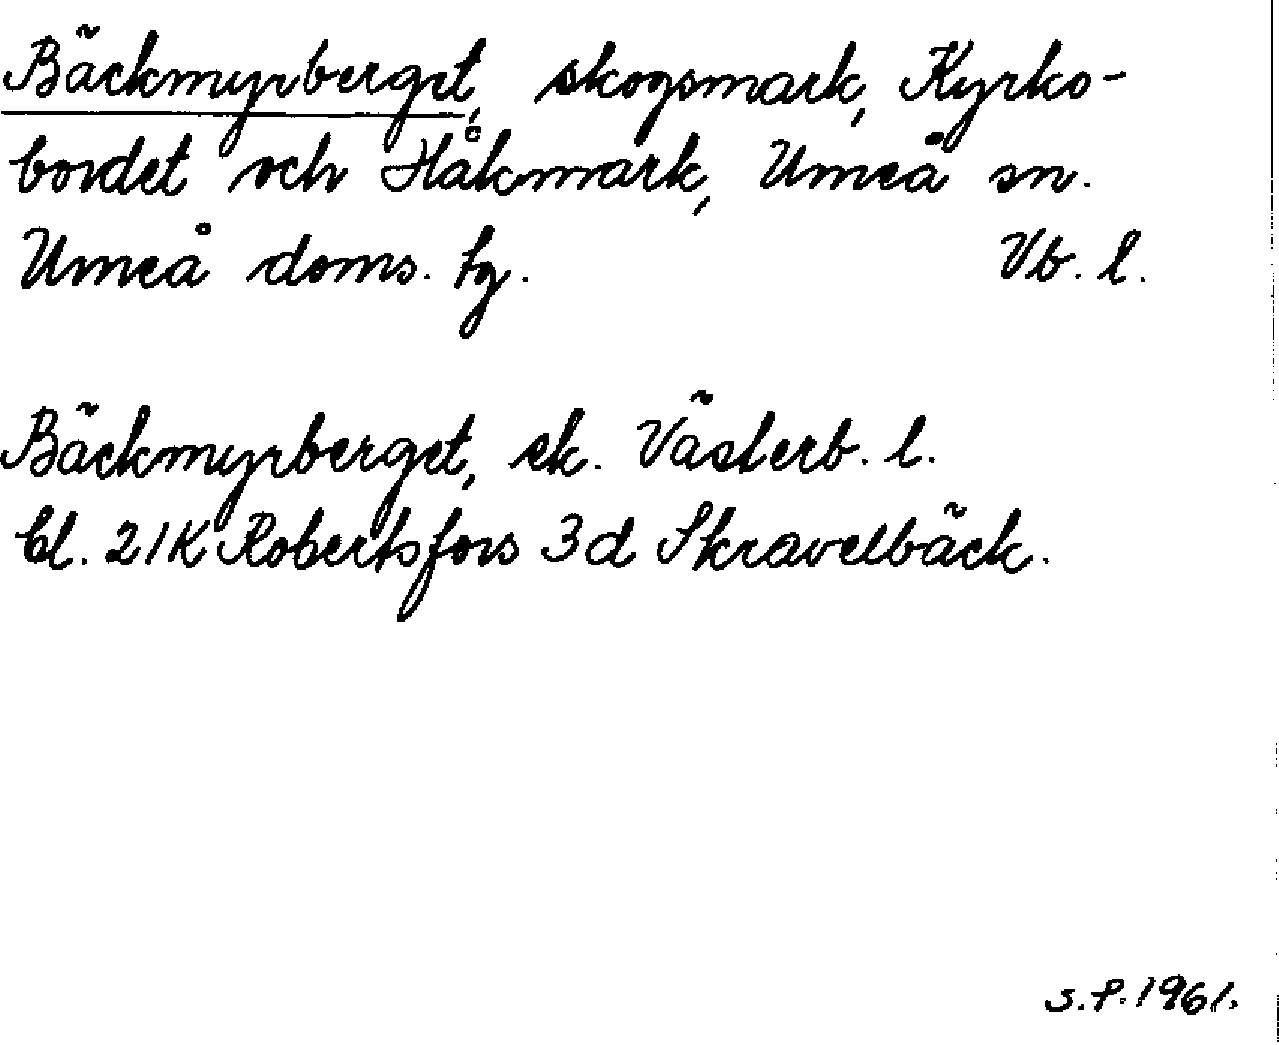 Bäckmyrberget, skogsmark, Kyrko-
bordet och Håkmark, Umeå sn.
Umeå doms. tg. Vb. l.
Bäckmyrberget, ek. Västerb. l.
bl. 21K Robertsfors 3d Skravelbäck.
S.P. 1961.